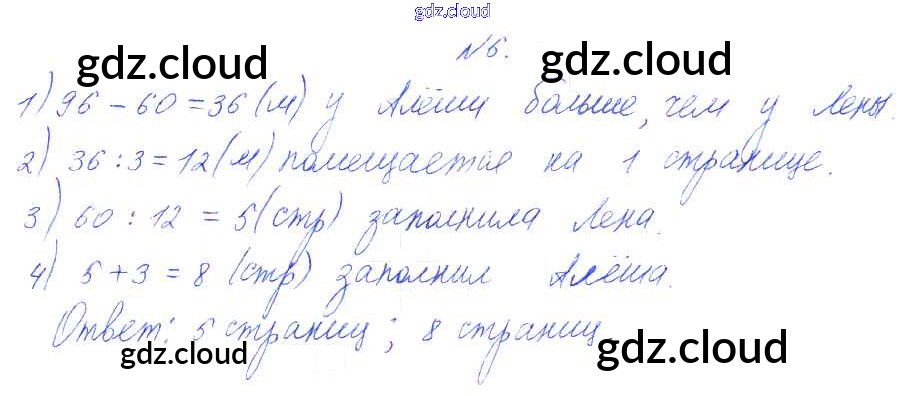 gdz.cloud
№6.
gdz.cloud gdz.cloud
1) 96 - 60 = 36 (м) у Алёши больше, чем у Лены.
2) 36 : 3 = 12 (м) помещается на 1 странице.
3) 60 : 12 = 5 (стр) заполнила Лена.
4) 5 + 3 = 8 (стр) заполнил Алёша.
Ответ: 5 страниц ; 8 страниц
gdz.cloud gdz.cloud